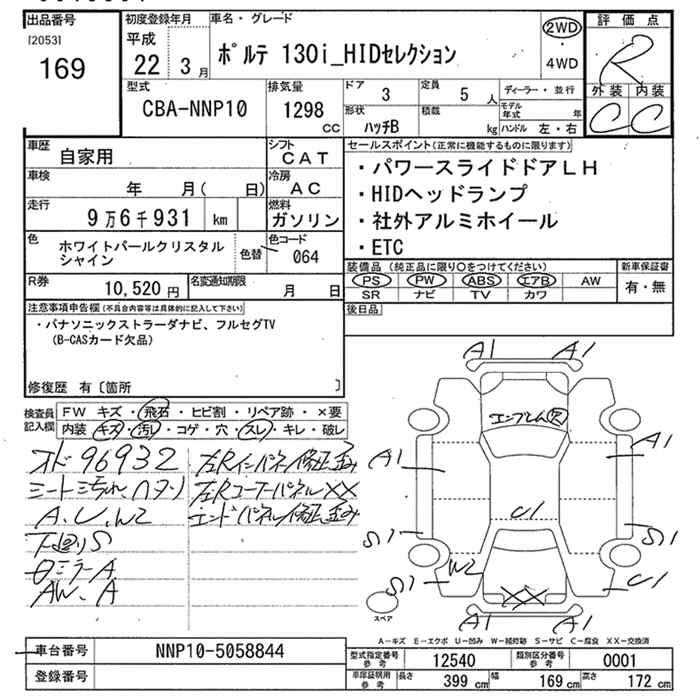 出品番号
[2053]
169
初度登録年月
平成
22 3月
車名・グレード
ポルテ 130i_HIDセレクション
2WD
・
4WD
評価点
R
外装 内装
C C
型式
CBA-NNP10
排気量
1298
CC
ドア
3
定員
5 人
ディーラー・並行
形状
ハッチB
積載
kg
モデル年式 年
ハンドル 左・右
車歴
自家用
シフト
CAT
車検
年 月( 日)
冷房
AC
走行
9万6千931 km
燃料
ガソリン
色
ホワイトパールクリスタル
シャイン
色替
色コード
064
R券
10,520 円
名変通知期限
月 日
セールスポイント(正常に機能するものに限ります)
・パワースライドドアLH
・HIDヘッドランプ
・社外アルミホイール
・ETC
装備品(純正品に限り○をつけてください)
PS PW ABS エアB AW
SR ナビ TV カワ
新車保証書
有・無
注意事項申告欄(不具合内容等は具体的に記入して下さい)
・パナソニックストラーダナビ、フルセグTV
(B-CASカード欠品)
修復歴 有〔箇所 〕
後日品
検査員
記入欄
FW キズ・飛石・ヒビ割・リペア跡・×要
内装 キズ・汚レ・コゲ・穴・スレ・キレ・破レ
オド 96932
A、U、W2
下廻りS
ミラーA
AW、A
左Rインパネル修正歪み
左RコーナーパネルXX
エンドパネル修正歪み
A1 A1
エンブレム欠
A1 A1
U1
S1 S1
S1 W2 C1
XX
スペア
A-キズ E-エクボ U-凹み W-補修跡 S-サビ C-腐食 XX-交換済
車台番号
NNP10-5058844
登録番号
型式指定番号
参考
12540
類別区分番号
参考
0001
車庫証明用
参考
長さ
399 cm
幅
169 cm
高さ
172 cm